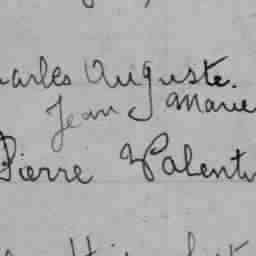 harles Auguste.
Jean Marie
Pierre Valentin